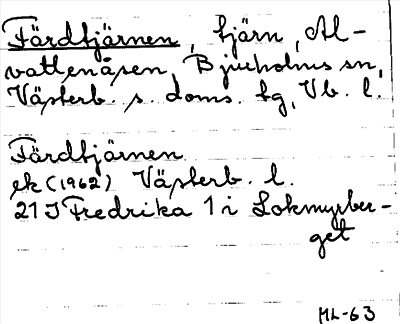 Färdtjärnen, tjärn, Al-
vattenåsen, Bjurholms sn,
Västerb. s. doms. tg, Vb. l.
Färdtjärnen
ek (1962) Västerb. l.
21 J Fredrika 1 i Lokmyrber-
get
ML-63